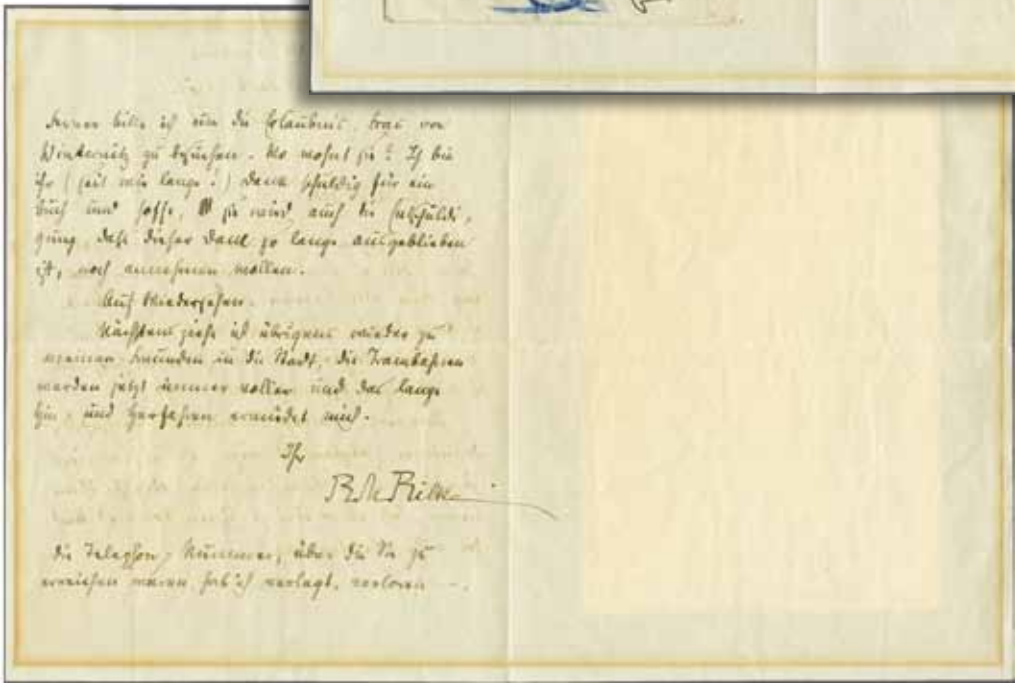 Ferner bitte ich um die Erlaubnis, Frau von
Winternitz zu besuchen. Wo wohnt sie? Ich bin
ihr (seit wie lange!) Dank schuldig für ein
Buch und hoffe, sie wird auch die Entschuldi-
gung, daß dieser Dank so lange ausgeblieben
ist, noch annehmen wollen.
Auf Wiedersehen.
Nächstens ziehe ich übrigens wieder zu
meinen Freunden in die Stadt, die Trambahnen
werden jetzt immer voller und das lange
Hin- und Herfahren ermüdet mich.
Ihr
RMRilke
die Telephon-Nummer, über die Sie zu
erreichen waren, hab ich verlegt, verloren –.